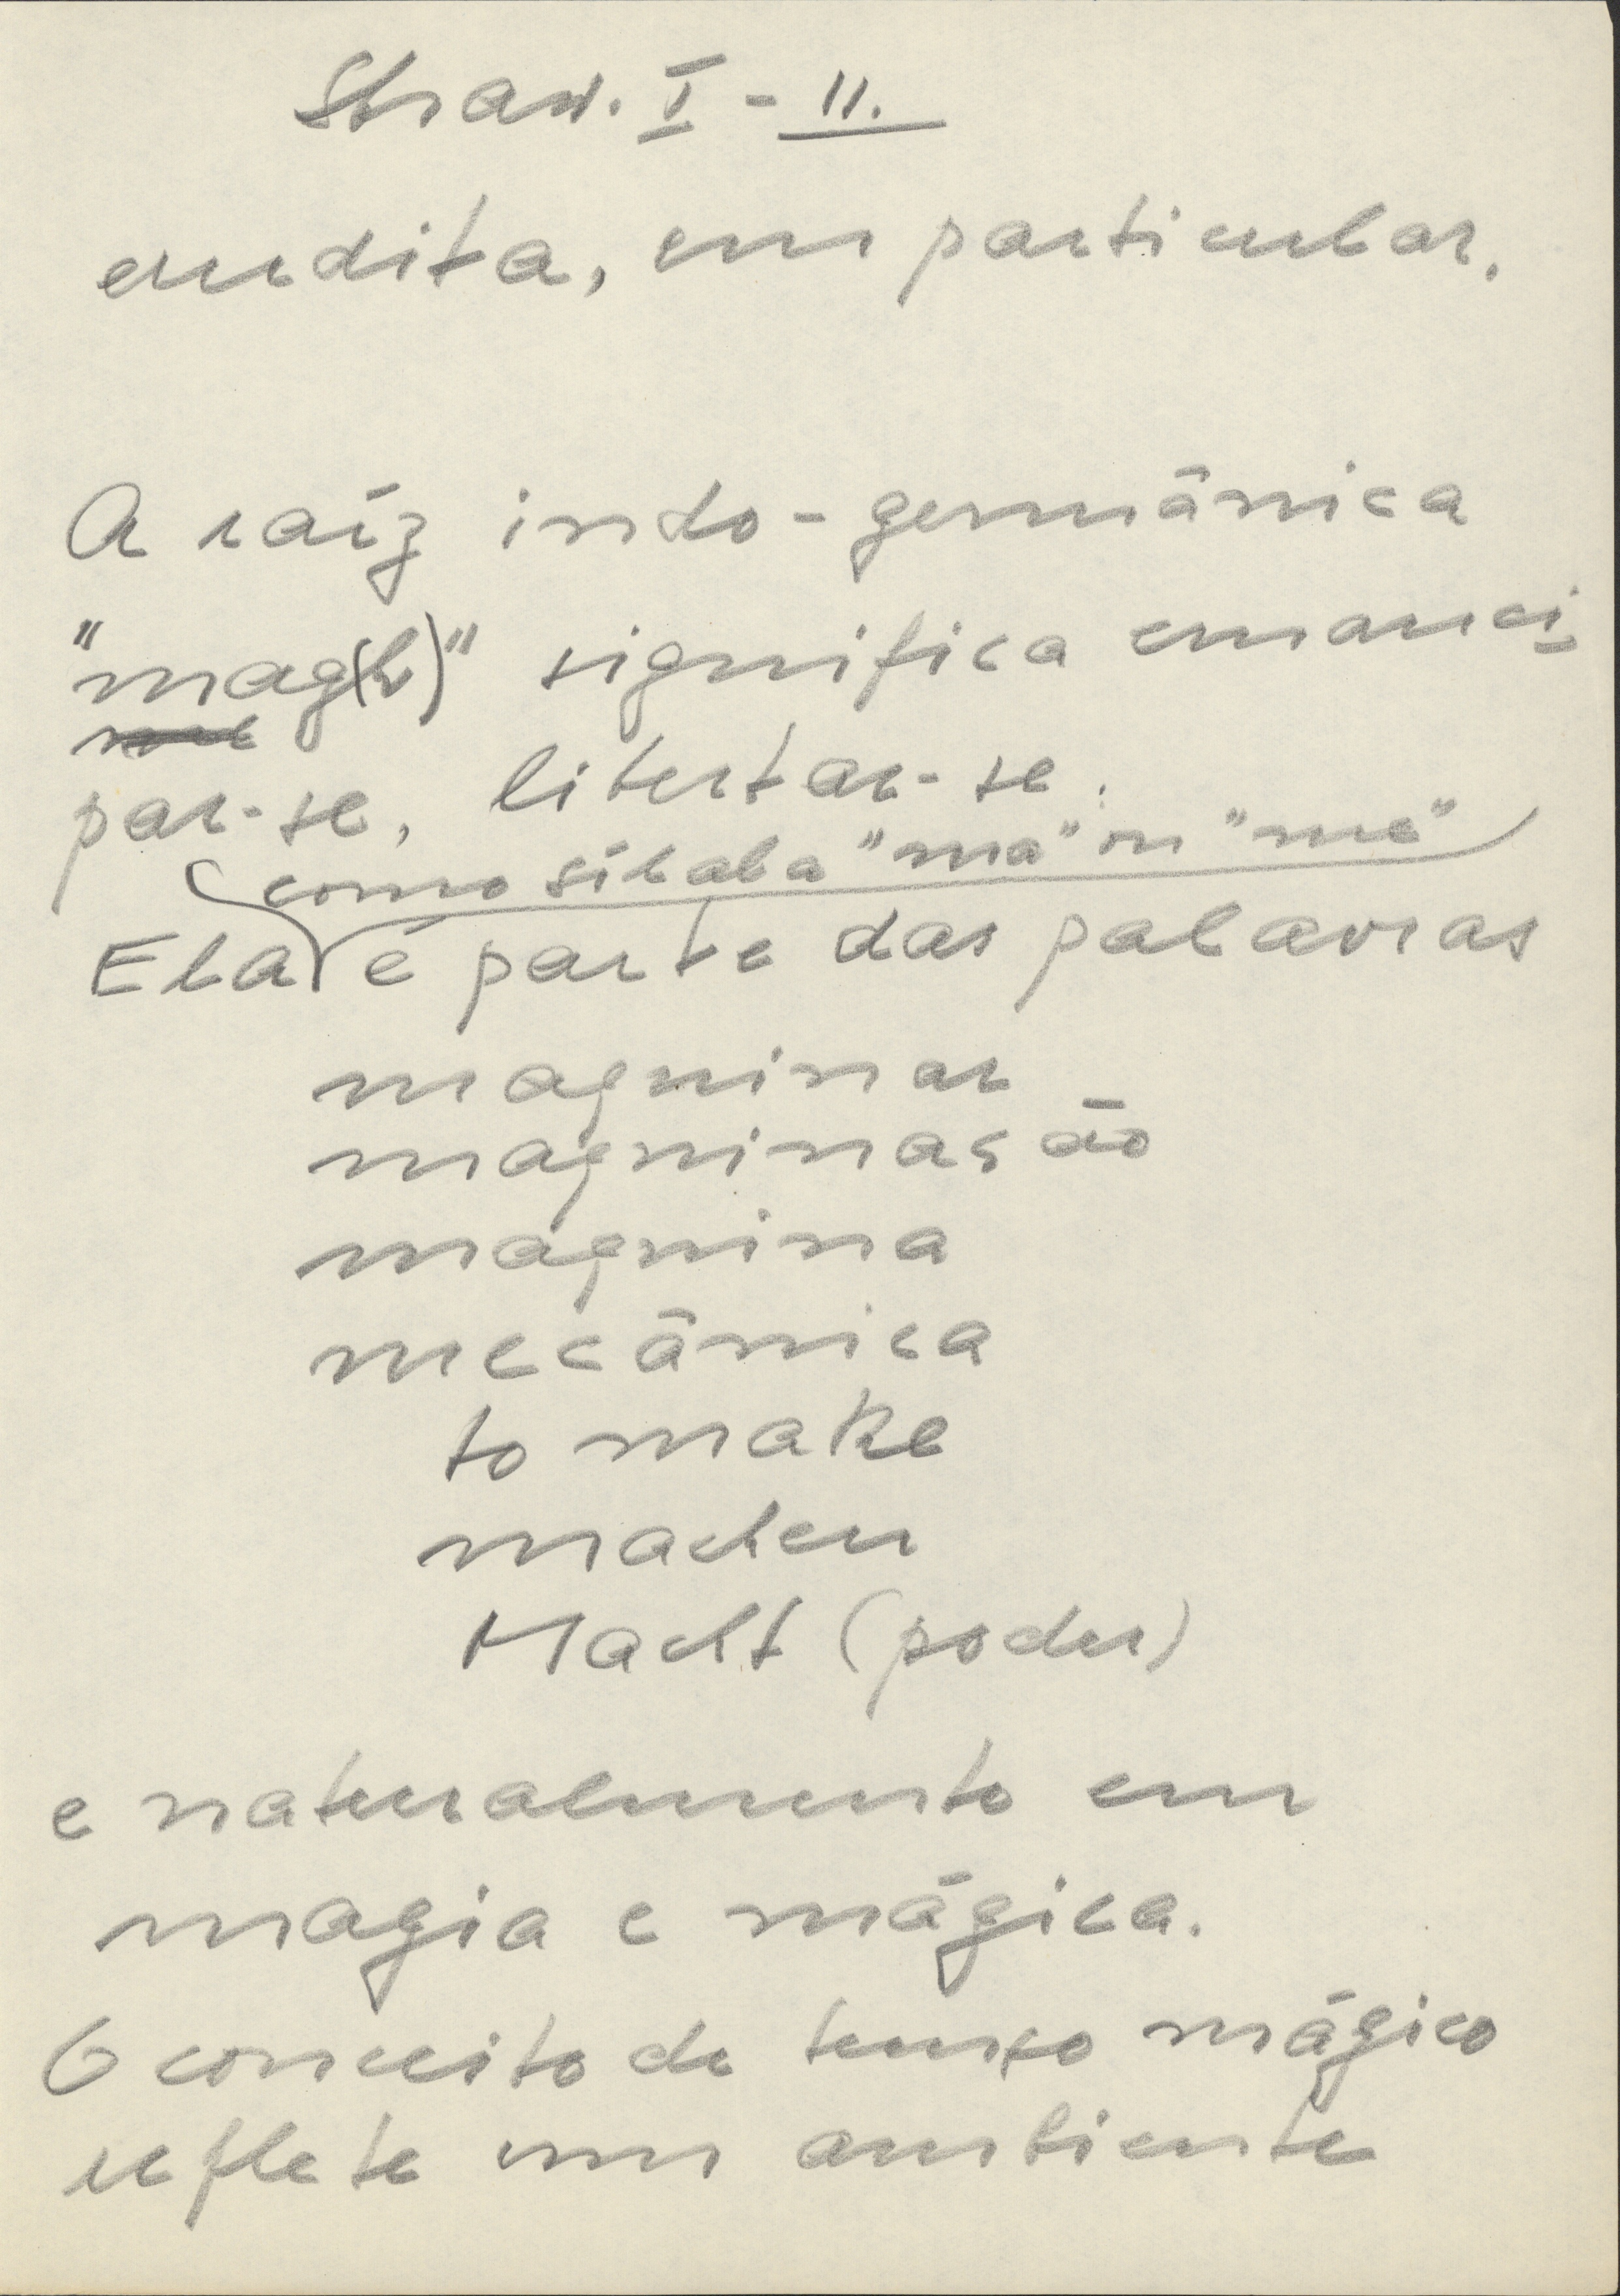 Straw. I - 11.
erudita, em particular.
A raíz indo-germânica
"mag(h)" significa emanci-
par-se, libertar-se.
como sílaba "ma" ou "me"
Ela é parte das palavras
maquinar
maquinação
máquina
mecânica
to make
machen
Macht (poder)
e naturalmente em
magia e mágica.
O conceito do tempo mágico
reflete um ambiente